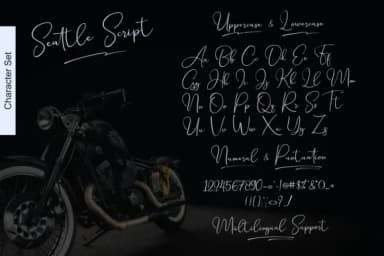 Character Set
Seattle Script
Uppercase & Lowercase
Aa Bb Cc Dd Ee Ff
Gg Hh Ii Jj Kk Ll Mm
Nn Oo Pp Qq Rr Ss Tt
Uu Vv Ww Xx Yy Zz
Numeral & Puntuation
1234567890
Multilingual Support